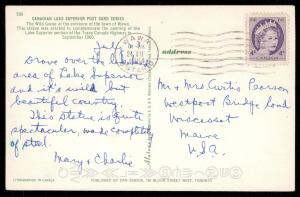 599
CANADIAN LAKE SUPERIOR POST CARD SERIES
The Wild Goose at the entrance of the town of Wawa.
This statue was erected to commemorate the opening of the
Lake Superior section of the Trans Canada Highway in
September 1960.
July
WAWA
address
Drove over the
area of Lake Superior
and it's wild but
beautiful country.
This statue is quite
spectacular, made complete
of steel.
Mary & Charlie
Mr & Mrs. Curtis Pearson
Westport Bridge Road
Wiscasset
Maine
U.S.A.
LITHOGRAPHED IN CANADA
PUBLISHED BY DAN GIBSON, 118 BLOOR STREET WEST, TORONTO